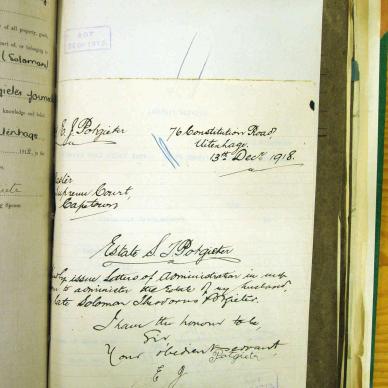 of all property, goods,
part of, or belonging to
(Solomon)
knowledge and belief
1912, in the
ing Spouse
E. J. Potgieter
76 Constitution Road
Uitenhage.
13th Decr. 1918.
Supreme Court,
Capetown
Estate S. T. Potgieter
issue Letters of Administration in
to administer the Estate of my husband,
late Solomon Theodorus Potgieter.
I have the honour to be,
Sir,
Your obedient servant,
Potgieter
E J